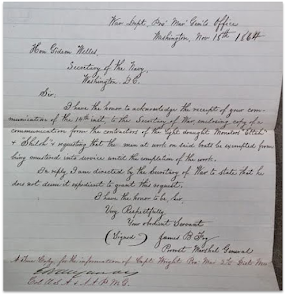 War Dept, Pro. Mar. Genls Office
Washington, Nov 18th 1864
Hon Gideon Welles,
Secretary of the Navy,
Washington D.C.
Sir.
I have the honor to acknowledge the receipt of your com-
munication of the 14th inst, to the Secretary of War enclosing copy of a
communication from the contractors of the light draught Monitors "Etlah"
& "Shiloh" & requesting that the men at work on said boats be exempted from
being mustered into service until the completion of the work.
In reply I am directed by the Secretary of War to state that he
does not deem it expedient to grant this request.
I have the honor to be, Sir,
Very Respectfully
Your obedient Servant
(Signed) James B Fry
Provost Marshal General
A True Copy for the information of Capt. Wright Pro. Mar. Dist Mo.
A. A. P. M. G.